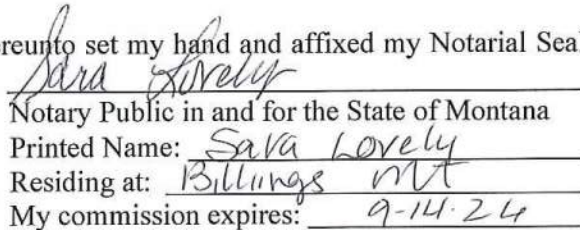 ereunto set my hand and affixed my Notarial Seal
Sara Lovely
Notary Public in and for the State of Montana
Printed Name: Sara Lovely
Residing at: Billings MT
My commission expires: 9-14-24